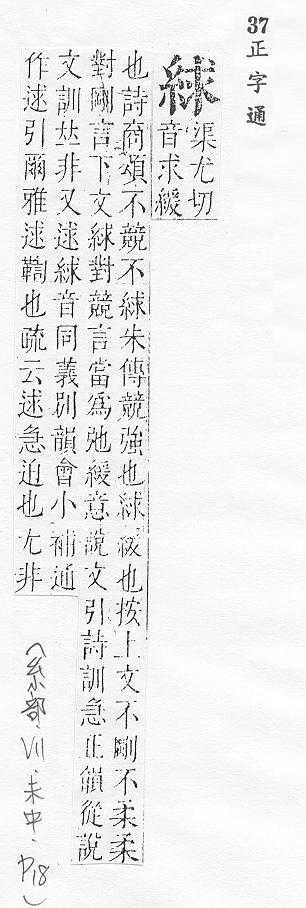 37正字通
絿
渠尤切
音求緩
也詩商頌不競不絿朱傳競強也絿緩也按上文不剛不柔柔
對剛言下文絿對競言當爲弛緩意說文引詩訓急正韻從說
文訓𠀤非又逑絿音同義別韻會小補通
作逑引爾雅逑鞫也疏云逑急迫也尤非
(糸部 VII.未中.P18)